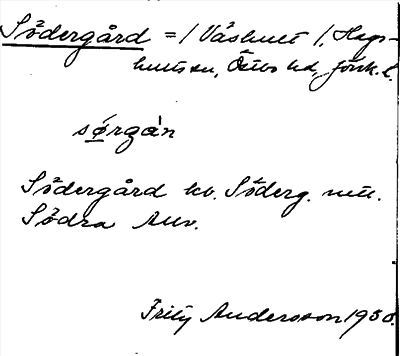 Södergård = / Våshult /, Hags-
hults sn, Östbo hd, Jönk. l.
sørgån
Södergård kv. Söderg. nu.
Södra Anv.
Fritz Andersson 1930.